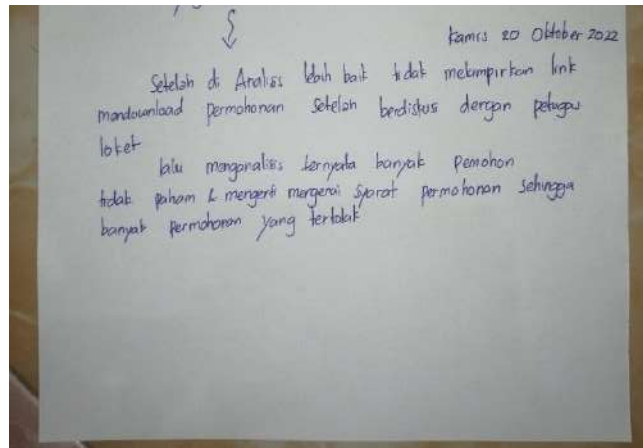 Kamis 20 Oktober 2022
Setelah di Analiss lebih baik tidak melampirkan link
mandownload permohonan setelah berdiskus dengan petugas
loket
lalu menganaliss ternyata banyak pemohon
tidak paham & mengerti mengenai syarat permohonan sehingga
banyak permohonan yang tertolak